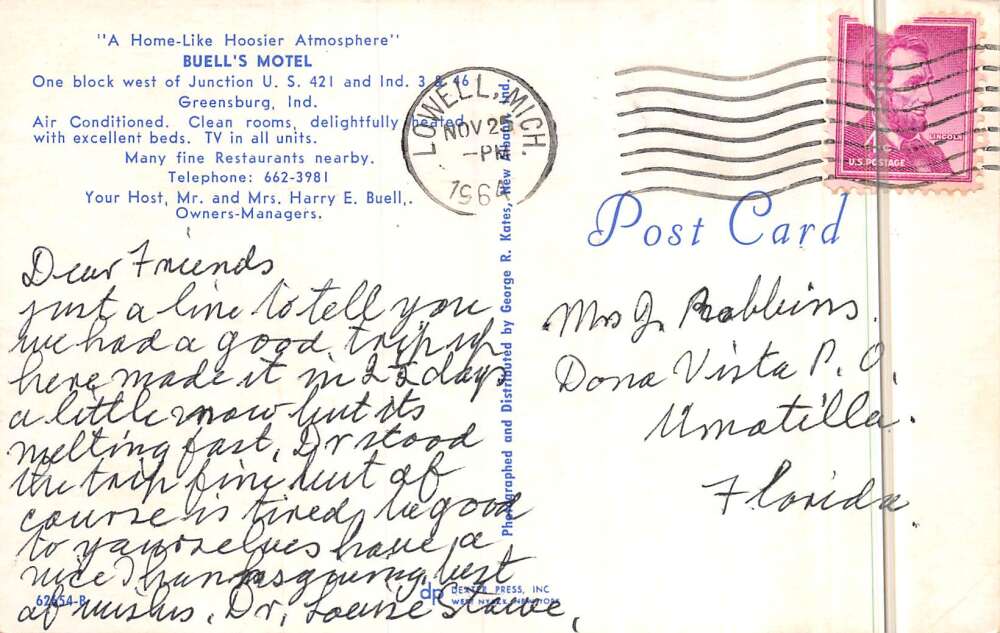 "A Home-Like Hoosier Atmosphere"
BUELL'S MOTEL
One block west of Junction U. S. 421 and Ind. 3 & 46
Greensburg, Ind.
Air Conditioned. Clean rooms, delightfully heated
with excellent beds. TV in all units.
Many fine Restaurants nearby.
Telephone: 662-3981
Your Host, Mr. and Mrs. Harry E. Buell,.
Owners-Managers.
LOWELL, MICH.
NOV 25
-PM
1964
LINCOLN
U.S. POSTAGE
Post Card
Dear Friends
just a line to tell you
we had a good trip up
here made it in 2½ days,
a little snow but its
melting fast, Dr stood
the trip fine but of
course is tired, be good
to yourselves have a
nice Thanksgiving, best
of wishes, Dr, Louise Stowe,
Mrs J. Robbins.
Dona Vista P. O,
Umatilla.
Florida.
Photographed and Distributed by George R. Kates, New Albany, Ind.
62654-B
dp DEXTER PRESS, INC
WEST NYACK, NEW YORK